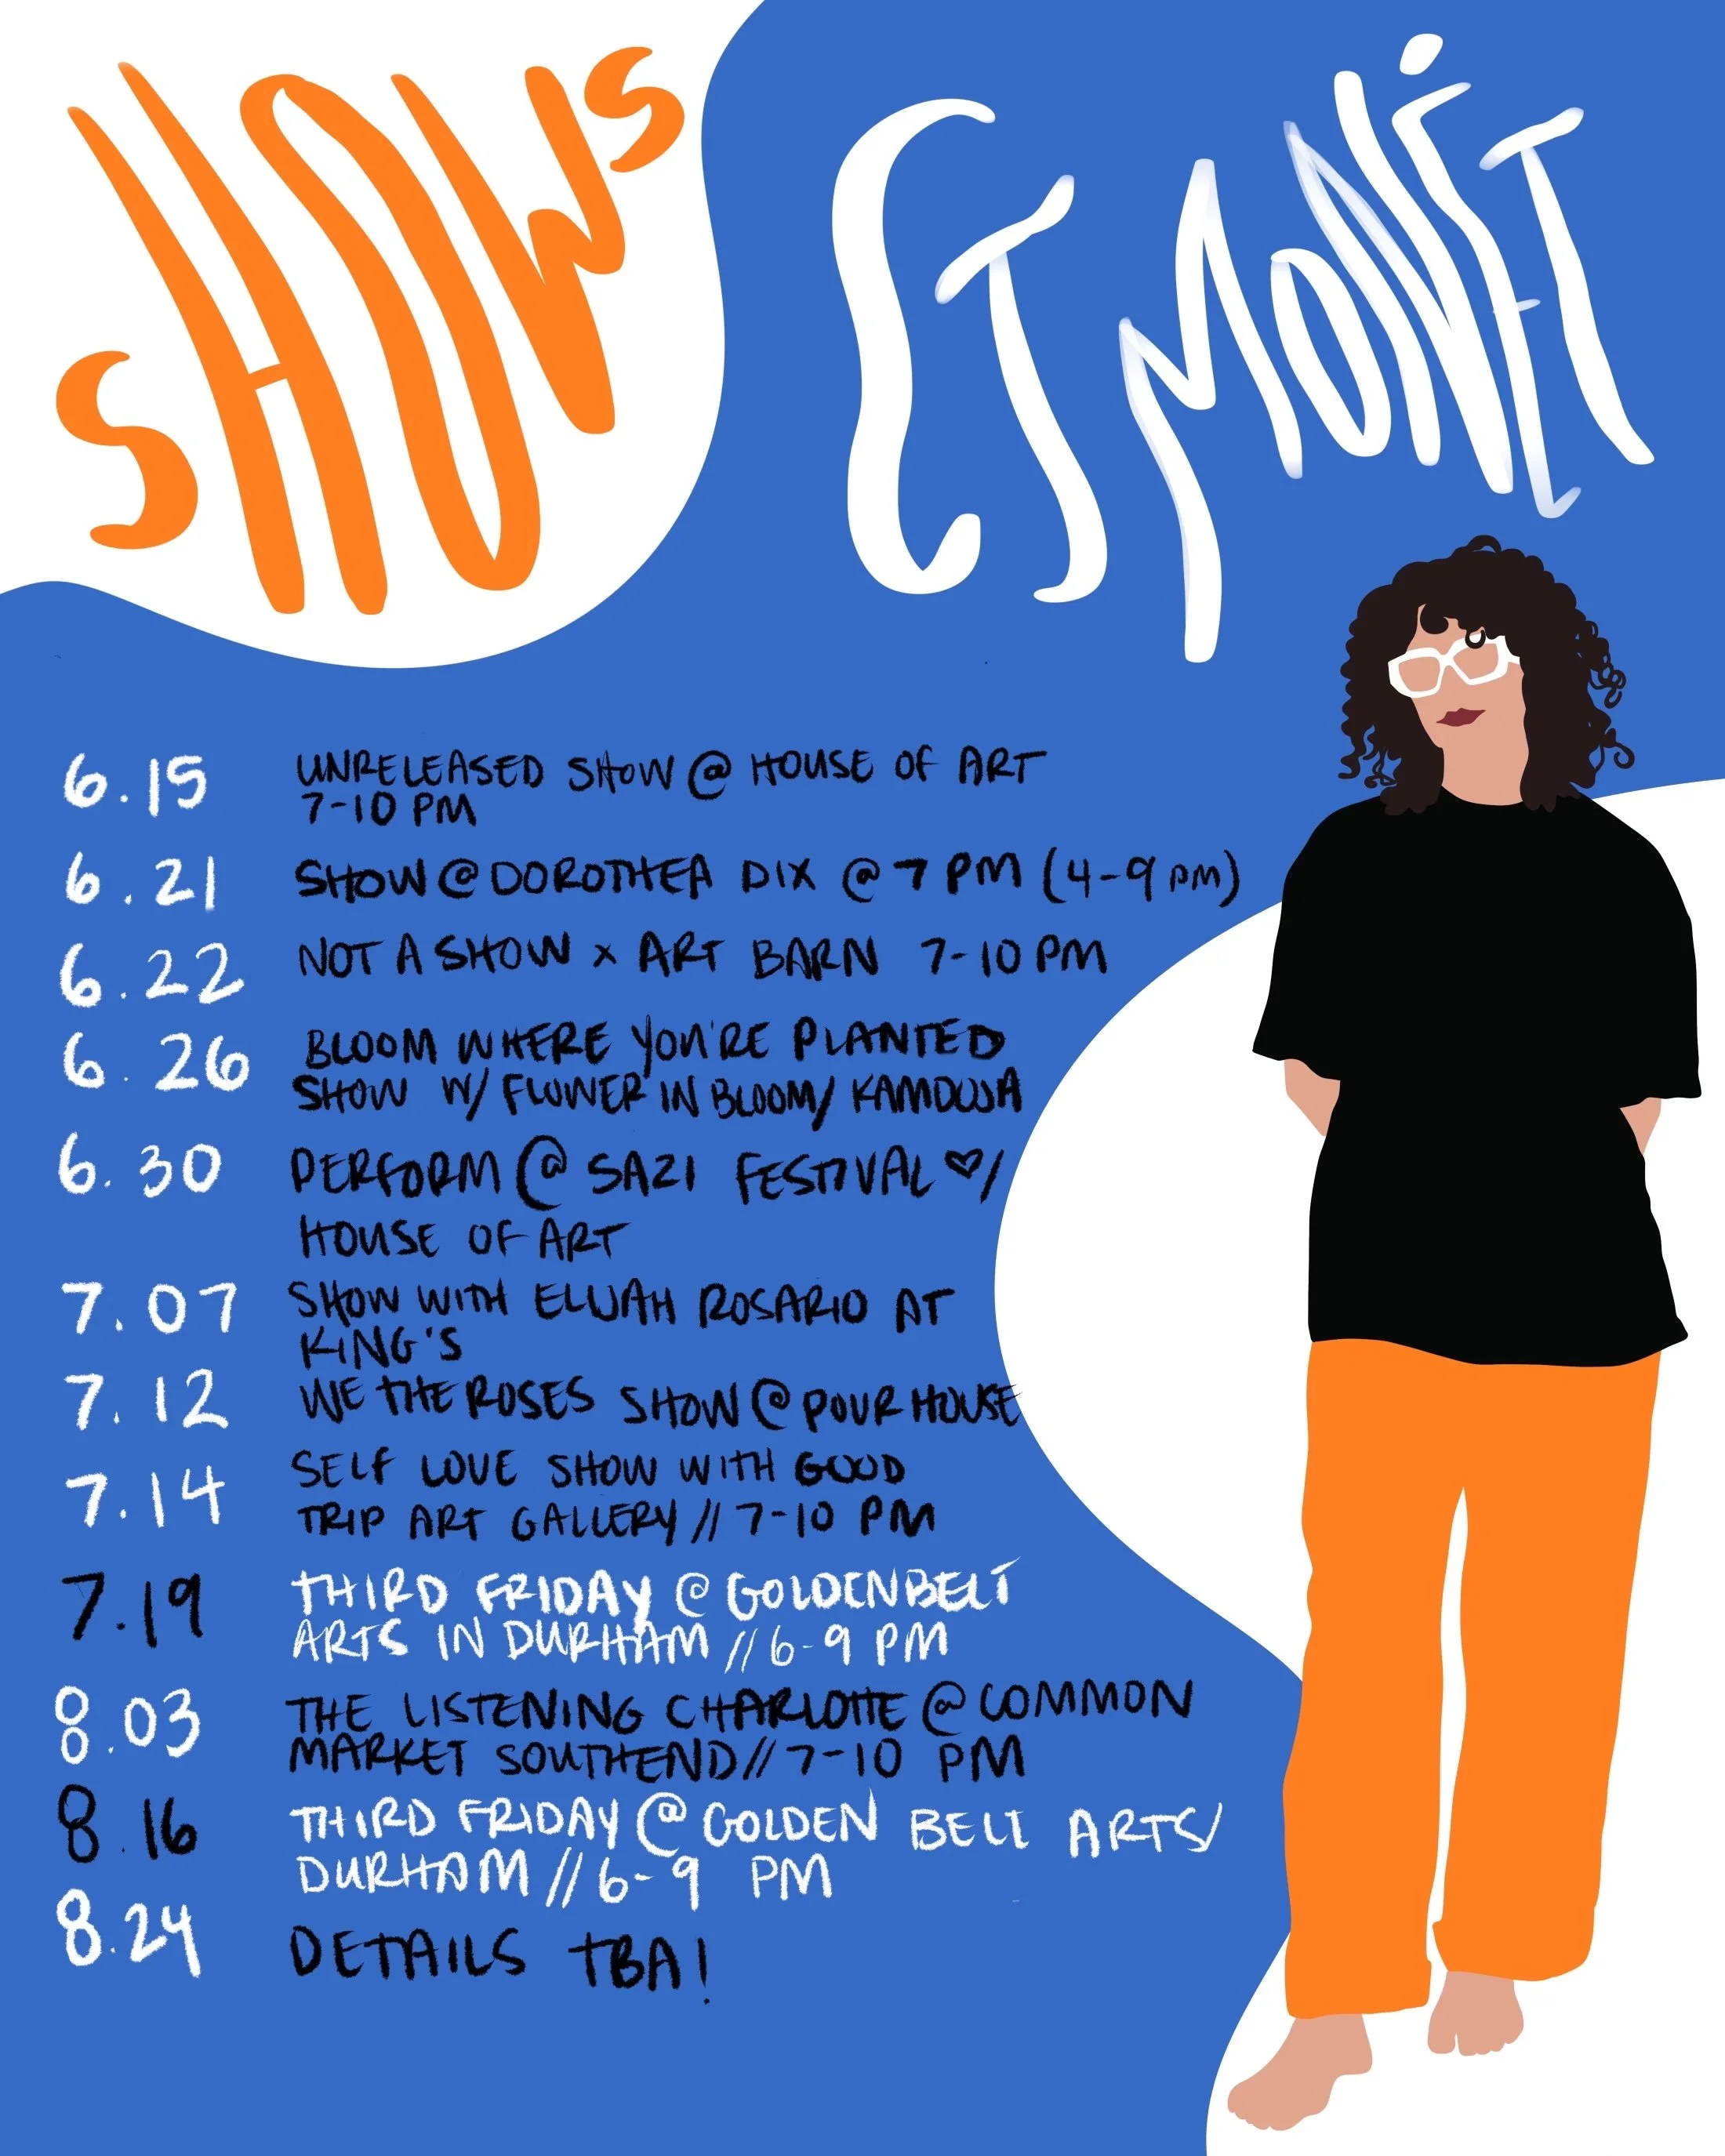 SHOWS
CTMONÉT
6.15 UNRELEASED SHOW @ HOUSE OF ART
7-10 PM
6.21 SHOW @ DOROTHEA DIX @ 7 PM (4-9 PM)
6.22 NOT A SHOW x ART BARN 7-10 PM
6.26 BLOOM WHERE YOU'RE PLANTED
SHOW W/ FLOWER IN BLOOM/
6.30 PERFORM @ SAZI FESTIVAL ♡/
HOUSE OF ART
7.07 SHOW WITH ELIJAH ROSARIO AT
KING'S
7.12 WE THE ROSES SHOW @ POUR HOUSE
7.14 SELF LOVE SHOW WITH GOOD
TRIP ART GALLERY // 7-10 PM
7.19 THIRD FRIDAY @ GOLDENBELT
ARTS IN DURHAM // 6-9 PM
8.03 THE LISTENING CHARLOTTE @ COMMON
MARKET SOUTHEND // 7-10 PM
8.16 THIRD FRIDAY @ GOLDEN BELT ARTS/
DURHAM // 6-9 PM
8.24 DETAILS TBA!